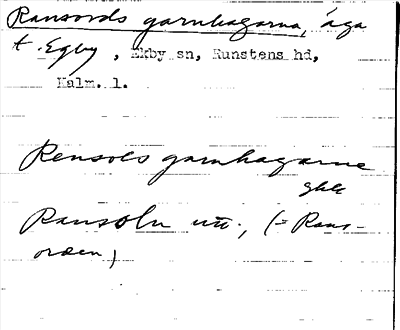 Ransords garnhagarna, äga
t. Egby, Ekby sn, Runstens hd,
Kalm. l.
Rensols garnhagarne
Ransoln (= Rans-
orden)